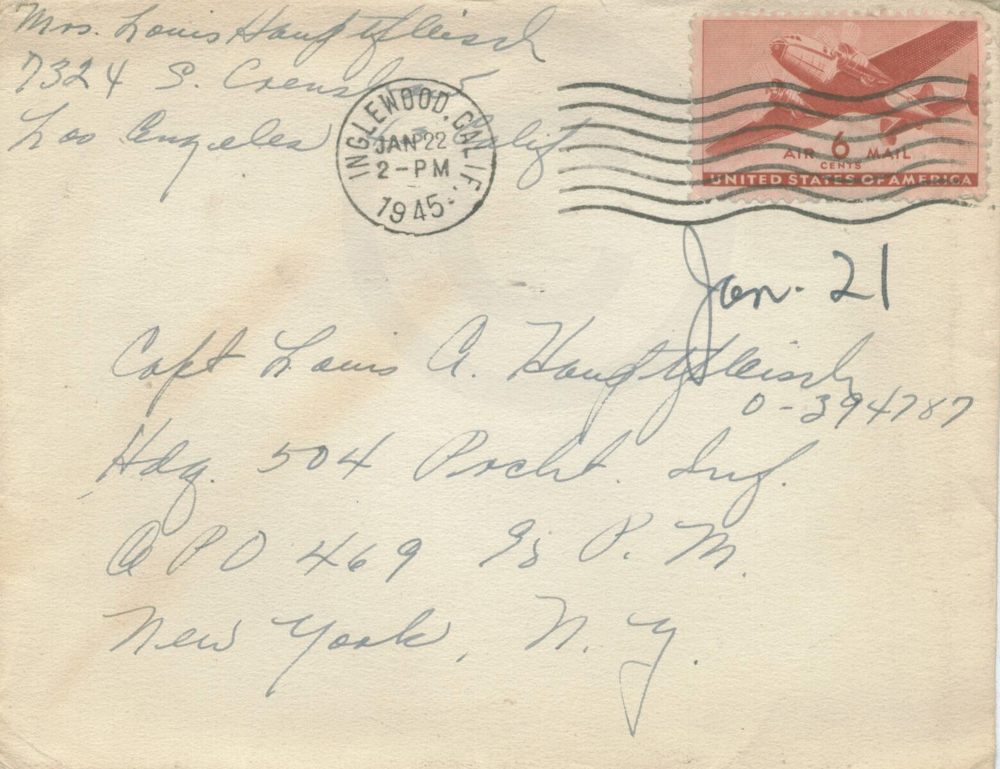 Mrs. Louis Hauptfleisch
7324 S. Crensh
Los Angeles Calif
INGLEWOOD, CALIF.
JAN 22
2-PM
1945
AIR 6 MAIL
CENTS
UNITED STATES OF AMERICA
Jan. 21
Capt Louis A. Hauptfleisch
O-394787
Hdq. 504 Pracht. Inf.
APO 469 % P. M.
New York, N. Y.